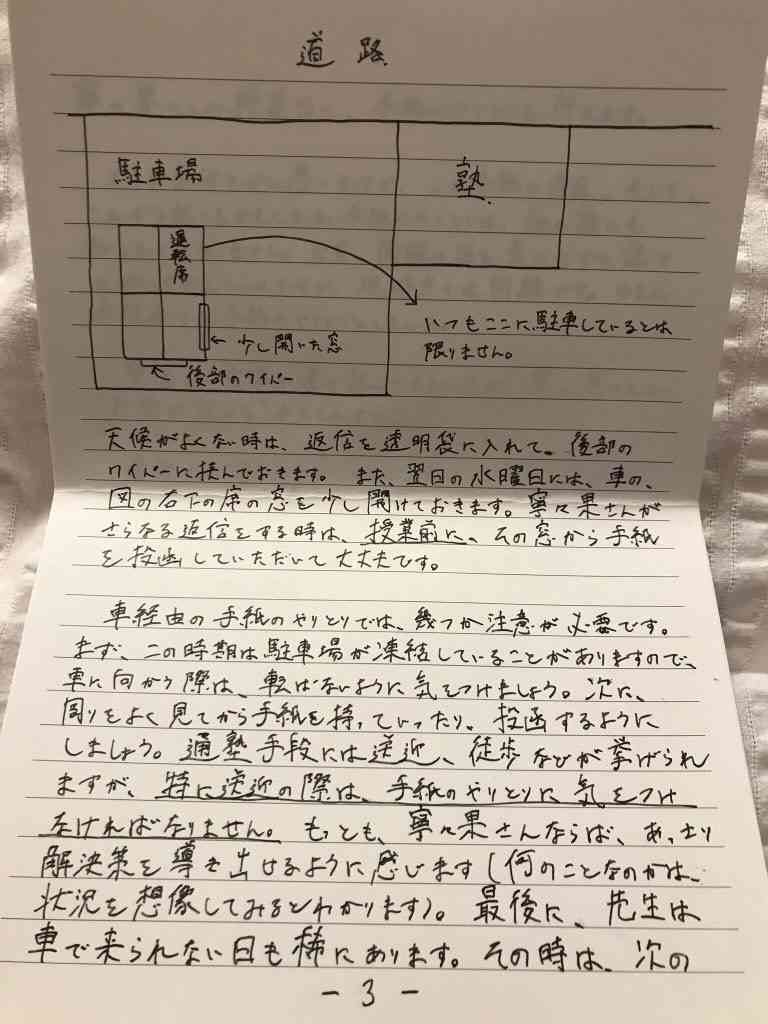 道路
駐車場
塾
運転席
いつもここに駐車しているとは
限りません。
← 少し開いた窓
後部のワイパー
天候がよくない時は、返信を透明袋に入れて、後部の
ワイパーに挟んでおきます。また、翌日の水曜日には、車の、
図の右下の席の窓を少し開けておきます。寧々果さんが
さらなる返信をする時は、授業前に、その窓から手紙
を投函していただいて大丈夫です。
車経由の手紙のやりとりでは、幾つか注意が必要です。
まず、この時期は駐車場が凍結していることがありますので、
車に向かう際は、転ばないように気をつけましょう。次に、
周りをよく見てから手紙を持っていったり、投函するように
しましょう。通塾手段には送迎、徒歩などが挙げられ
ますが、特に送迎の際は、手紙のやりとりに気をつけ
なければなりません。もっとも、寧々果さんならば、あっさり
解決策を導き出せるように感じます(何のことなのかは、
状況を想像してみるとわかります)。最後に、先生は
車で来られない日も稀にあります。その時は、次の
- 3 -